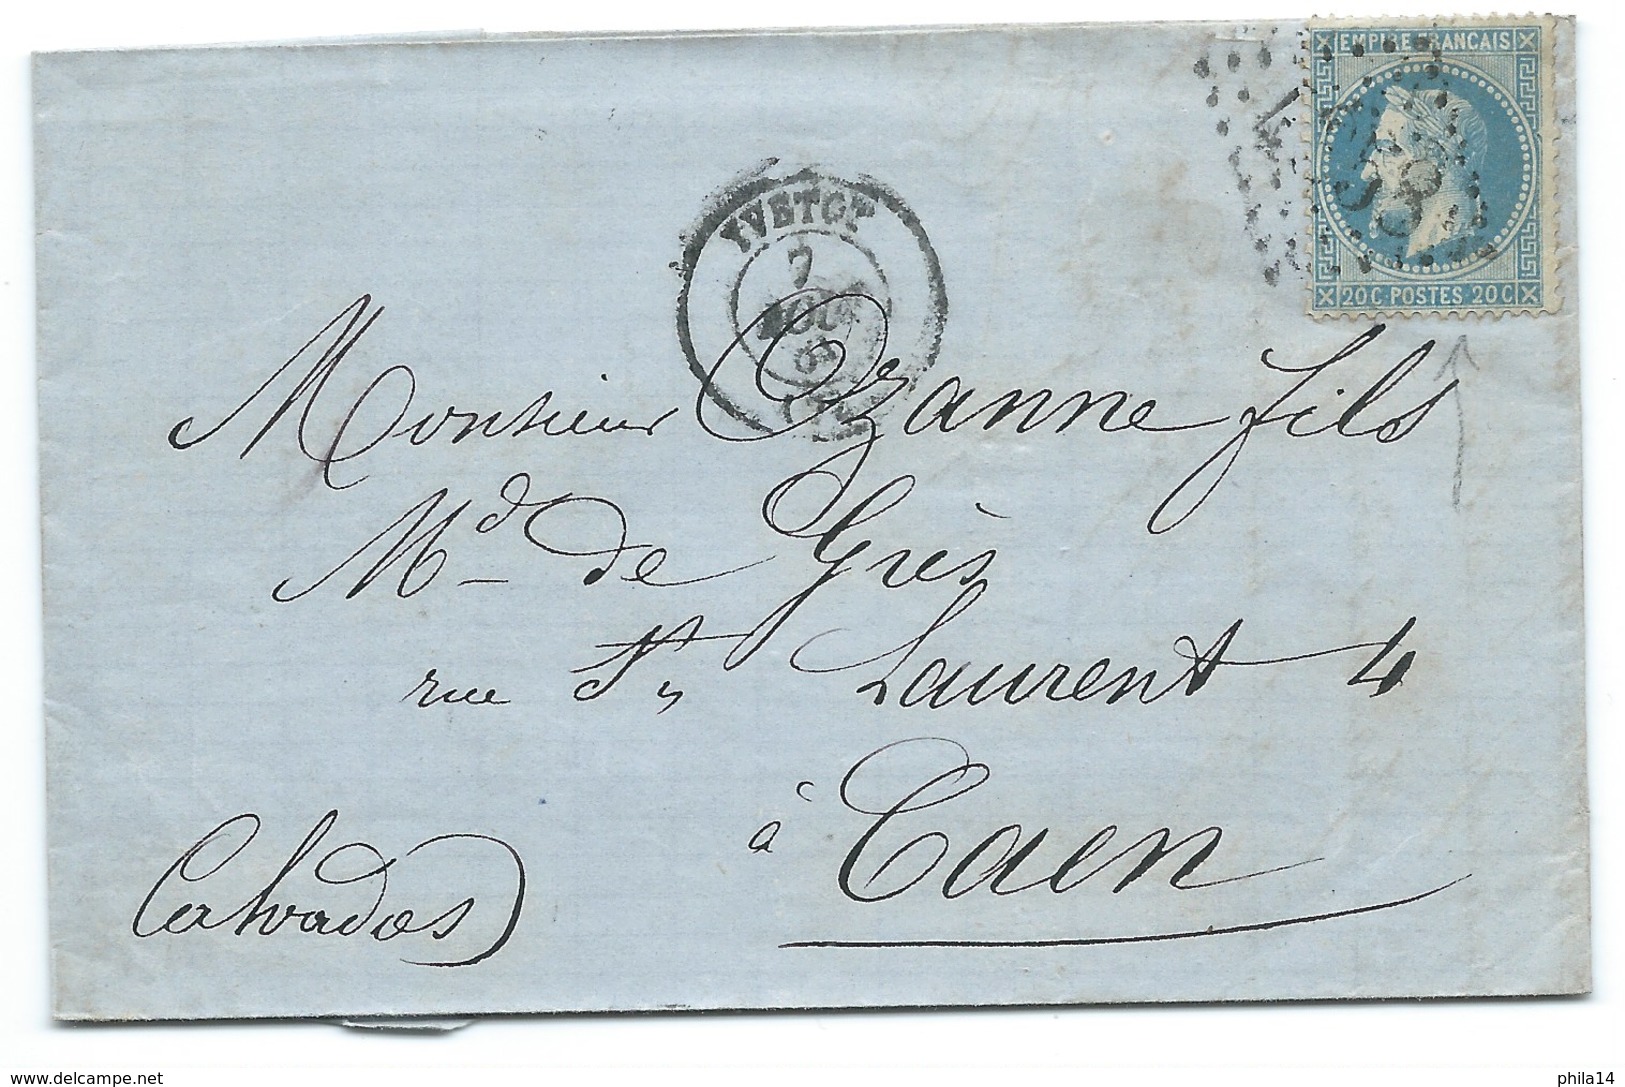 EMPIRE FRANCAIS
458
20C POSTES 20C
YVETOT
7
AOUT
Monsieur Ozanne fils
Md de Grès
rue St Laurent 4
à Caen
Calvados
www.delcampe.net
phila14